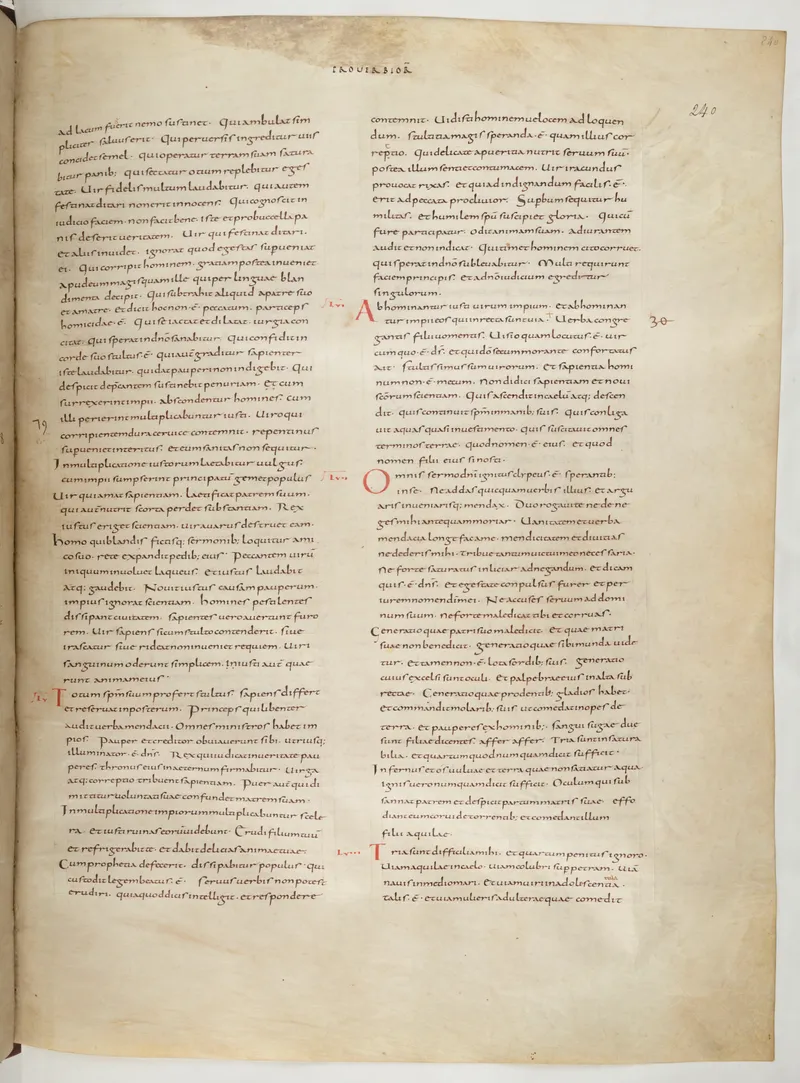 PROVERBIOR̄
240
240
ad lacum fuerit nemo sustinet. Qui ambulat sim
pliciter saluus erit. Qui peruersis ingreditur uiis
concidet semel. Qui operatur terram suam satura
bitur panib; qui sectatur otium replebitur eges
tate. Uir fidelis multum laudabitur. qui autem
festinat ditari non erit innocens. Qui cognoscit in
iudicio faciem. non facit bene. iste et pro buccella pa
nis deserit ueritatem. Uir qui festinat ditari.
et aliis inuidet. ignorat quod egestas superueniat
ei. Qui corripit hominem. gratiam postea inueniet
apud eum magis quam ille qui per linguae blan
dimenta decipit. Qui subtrahit aliquid a patre suo
et a matre. et dicit hoc non ē peccatum. particeps
homicidae ē. Qui se iactat et dilatat. iurgia con
citat. qui sperat in dn̄o sanabitur. Qui confidit in
corde suo stultus ē. qui autē graditur sapienter.
iste laudabitur. qui dat pauperi non indigebit. Qui
despicit depcantem sustinebit penuriam. Et cum
surrexerint impii. abscondentur homines. cum
illi perierint multiplicabuntur iusti. Uiro qui
corripientem dura ceruice contemnit. repentinus
superueniet interitus. et eum sanitas non sequitur.
In multiplicatione iustorum laetabitur uulgus.
cum impii sumpserint principatū gemet populus
Uir qui amat sapientiam. laetificat patrem suum.
qui autē nutrit scorta perdet substantiam. Rex
iustus eriget scientiam. uir auarus destruet eam.
homo qui blandis fictisq; sermonib; loquitur ami
co suo. rete expandit pedib; eius. Peccantem uirū
iniquum inuoluet laqueus. et iustus laudabit
atq; gaudebit. Nouit iustus causam pauperum.
impius ignorat scientiam. homines pestilentes
dissipant ciuitatem. sapientes uero auertunt furo
rem. Uir sapiens si cum stulto contenderit. siue
irascatur siue rideat non inueniet requiem. Uiri
sanguinum oderunt simplicem. Iusti autē quae
runt animam eius.
Totum spm̄ suum profert stultus. sapiens differt
et reseruat in posterum. Princeps qui libenter
audit uerba mendacii. Omnes ministros habet im
pios. Pauper et creditor obuiauerunt sibi. utriusq;
illuminator ē dn̄s. Rex qui iudicat in ueritate pau
peres. thronus eius in aeternum firmabitur. Uirga
atq; correptio tribuent sapientiam. Puer autē qui di
mittitur uoluntati suae confundet matrem suam.
In multiplicatione impiorum multiplicabuntur scele
ra. et iusti ruinas eorū uidebunt. Erudi filium tuū
et refrigerabit te. et dabit delicias animae tuae.
Cum prophetia defecerit. dissipabitur populus. qui
custodit legem beatus ē. seruus uerbis non potest
erudiri. quia quod dicis intelligit. et respondere
contemnit. Uidisti hominem uelocem ad loquen
dum. stultitia magis speranda ē. quam illius cor
reptio. Qui delicate a pueritia nutrit seruum suū.
postea illum sentiet contumacem. Uir iracundus
prouocat rixas. et qui ad indignandum facilis ē.
erit ad peccata procliuior. Supbum sequitur hu
militas. et humilem spū suscipiet gloria. Qui cū
fure participatur. odit animam suam. adiurantem
audit et non indicat. Qui timet hominem cito corruet.
qui sperat in dn̄o subleuabitur. Multi requirunt
faciem principis. et a dn̄o iudicium egreditur
singulorum.
Abhominantur iusti uirum impium. et abhominan
tur impii eos qui in recta sunt uia. Uerba congre
gantis filii uomentis. Uisio quam locutus ē. uir
cum quo ē ds̄. et qui dō secum morante confortatus
ait. stultissimus sum uirorum. et sapientia homi
num non ē mecum. Non didici sapientiam et noui
scōrum scientiam. Quis ascendit in caelū atq; descen
dit. quis continuit spm̄ in manib; suis. quis conliga
uit aquas quasi in uestimento. quis suscitauit omnes
terminos terrae. quod nomen ē eius. et quod
nomen filii eius si nosti.
Omnis sermo dn̄i ignitus clypeus ē sperantib;
in se. Ne addas quicquam uerbis illius. et argu
aris inueniarisq; mendax. Duo rogaui te ne dene
ges mihi antequam moriar. Uanitatem et uerba
mendacia longe fac a me. mendicitatem et diuitias
ne dederis mihi. tribue tantum uictui meo necessaria.
Ne forte satiatus inliciar ad negandum. et dicam
quis ē dn̄s. et egestate conpulsus furer et per
iurem nomen di mei. Ne accuses seruum ad domi
num suum. ne forte maledicat tibi et corruas.
Generatio quae patri suo maledicit. et quae matri
suae non benedicit. generatio quae sibi munda uide
tur. et tamen non ē lota a sordib; suis. generatio
cuius excelsi sunt oculi. et palpebrae eius in alta sub
rectae. Generatio quae pro dentib; gladios habet.
et commandit molarib; suis ut comedat inopes de
terra. et pauperes ex hominib;. sanguisugae duę
sunt filiae dicentes. affer affer. Tria sunt insatura
bilia. et quartum quod numquam dicit sufficit.
Infernus et os uuluae et terra quae non satiatur aqua.
ignis uero numquam dicit sufficit. Oculum qui sub
sannat patrem et despicit partum matris suae. effo
diant eum corui de torrentib; et comedant illum
filii aquilae.
Tria sunt difficilia mihi. et quartum penitus ignoro.
Uiam aquilae in caelo. uiam colubri sup petram. Uiā
nauis in medio mari. et uiam uiri in adoliscentia.
Talis ē et uia mulieris adulterae quae comedit
30